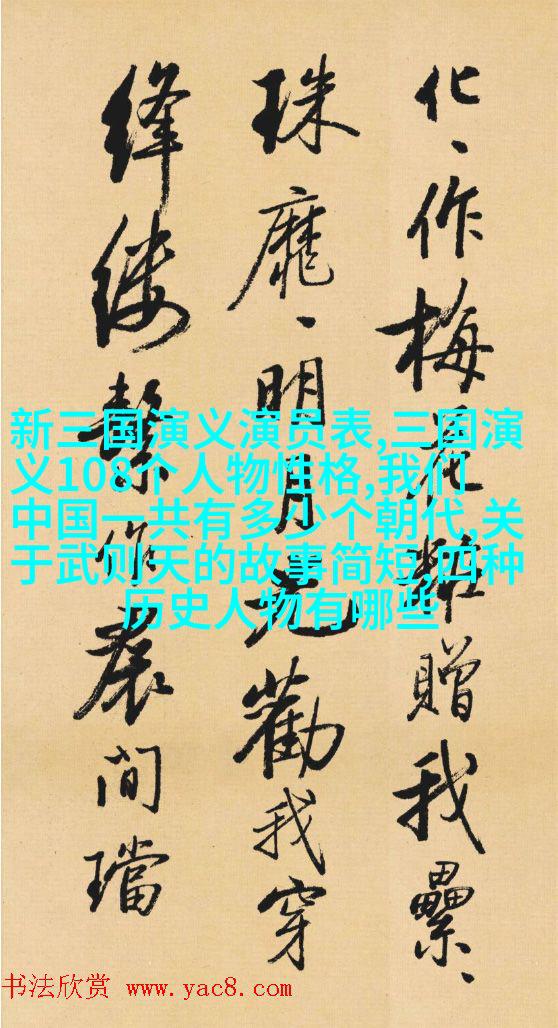 化、作梅花粒贈我纍、
珠靡、明月光勸我穿
絳縷繫作裳間璫
新三国演义演员表,三国演
义108个人物性格,我们
中国一共有多少个朝代,关
于武则天的故事简短,四种
历史人物有哪些
书法欣赏 www.yac8.com